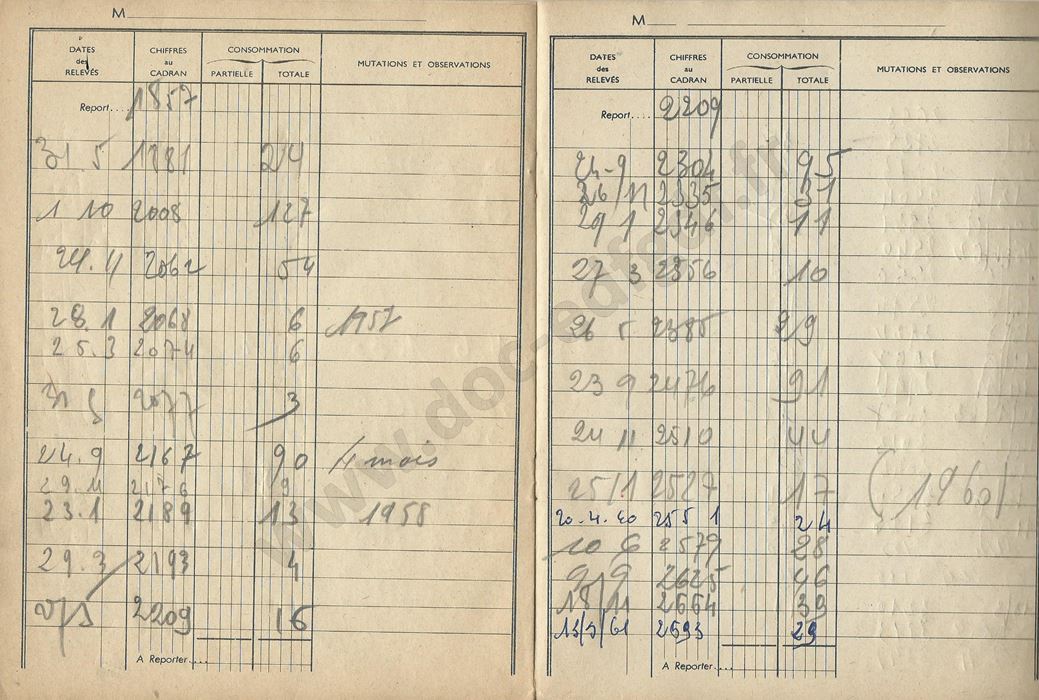 M
DATES des RELEVÉS CHIFFRES au CADRAN CONSOMMATION PARTIELLE TOTALE MUTATIONS ET OBSERVATIONS
Report.... 1857
31 5 1881 24
1 10 2008 127
24.11 2062 54
28.1 2068 6 1957
25.3 2074 6
31 5 2077 3
24.9 2167 90 4 mois
29.11 2176 9
23.1 2189 13 1958
29.3 2193 4
2209 16
A Reporter....
M
DATES des RELEVÉS CHIFFRES au CADRAN CONSOMMATION PARTIELLE TOTALE MUTATIONS ET OBSERVATIONS
Report.... 2209
24-9 2304 95
26/11 2335 31
29 1 2346 11
27 3 2356 10
26 5 2385 29
23 9 2476 91
24 11 2510 44
25/1 2527 17 (1960)
20.4.60 2551 24
10 6 2579 28
9/9 2625 46
18/11 2664 39
13/3/61 2693 29
A Reporter....
www.doc-edfgdf.fr